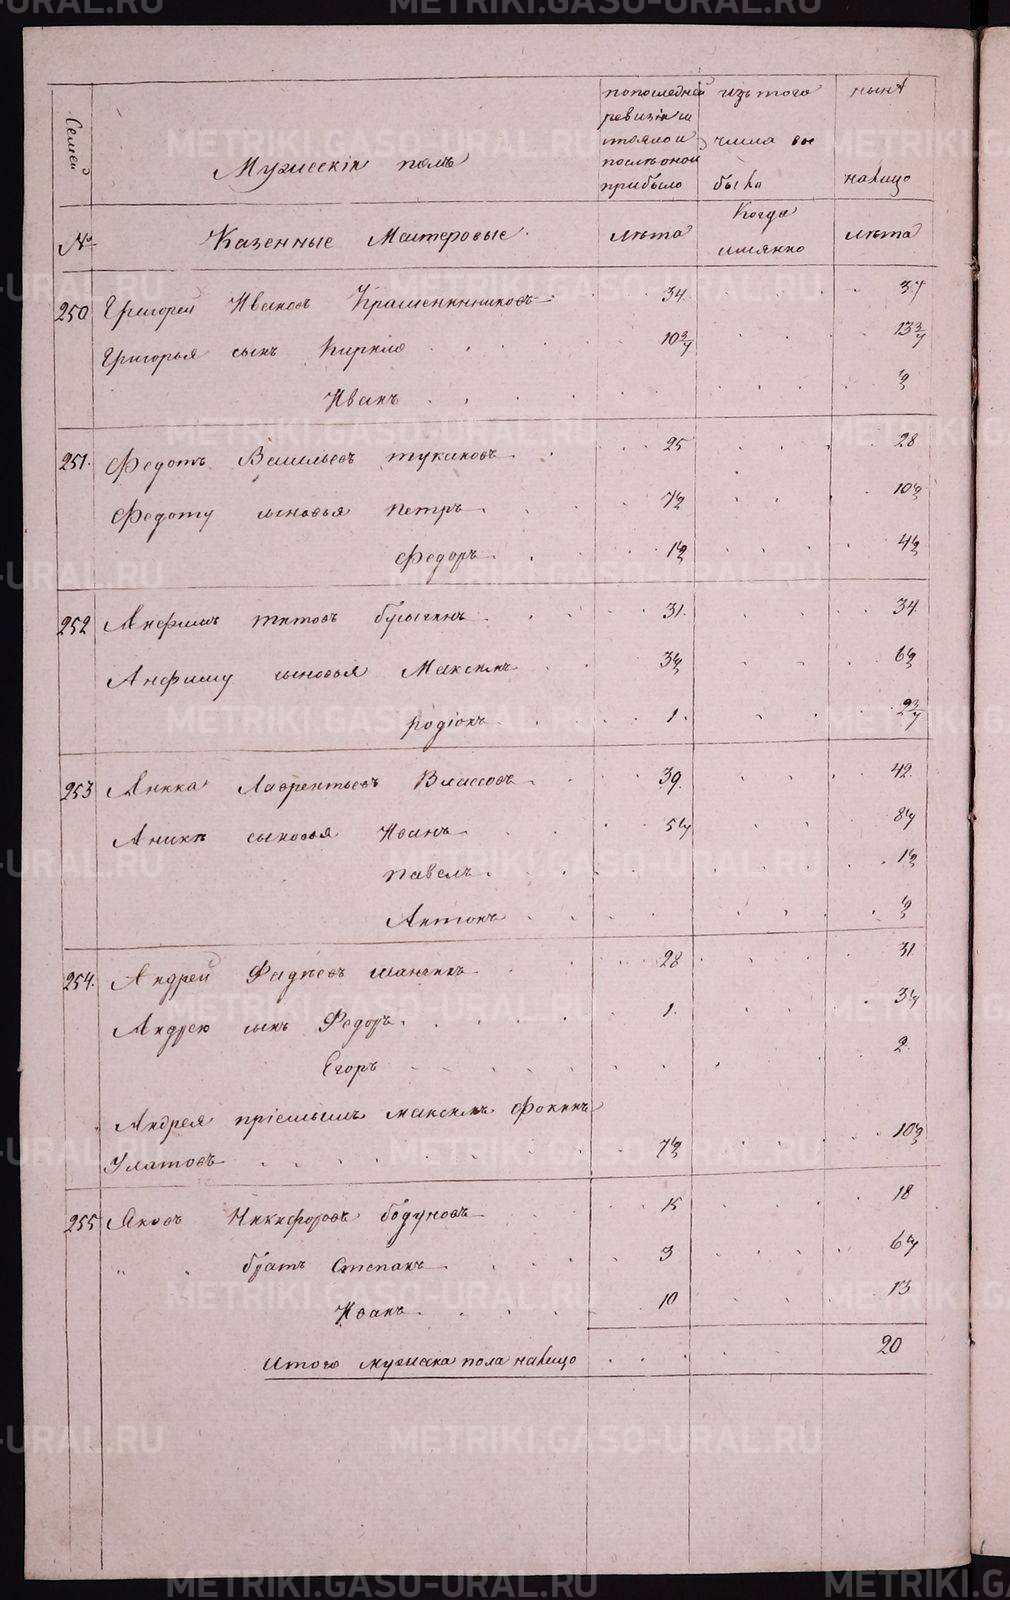 Семей
№
Мужескiй полъ
по последней
ревизiи
состояло и
после оной
прибыло
изъ того
числа вы
было
нынѣ
на лицо
Казенные Мастеровые.
лѣта
Когда
имянно
лѣта
250 Григорей Ивановъ Крашенинниковъ 34. 37
Григорья сынъ Кирило 10 3/4 13 3/4
Иванъ 1/2
251. Федотъ Васильевъ тукановъ 25 28
Федоту сыновья Петръ 7 1/2 10 1/2
Федоръ 1 1/2 4 1/2
252 Анфимъ титовъ булыгинъ 31. 34
Анфиму сыновья Максимъ 3 1/2 6 1/2
родiонъ 1. 2 3/4
253 Аника Лаврентьевъ Власовъ 39. 42.
Аникѣ сыновья Иванъ 5 1/4 8 1/4
павелъ 1 1/2
Антонъ 1/2
254. Андрей Фадѣевъ шангинъ 28 31
Андрею сынъ Федоръ 1. 3 1/4
Егоръ 2.
Андрея прiемышъ максимъ Фокинъ
Улатовъ 7 1/2 10 1/2
255 Яковъ Никифоровъ бодуновъ 15 18
" братъ Степанъ 3 6 1/4
Иванъ 10 13
Итого мужеска пола на лицо 20
METRIKI.GASO-URAL.RU